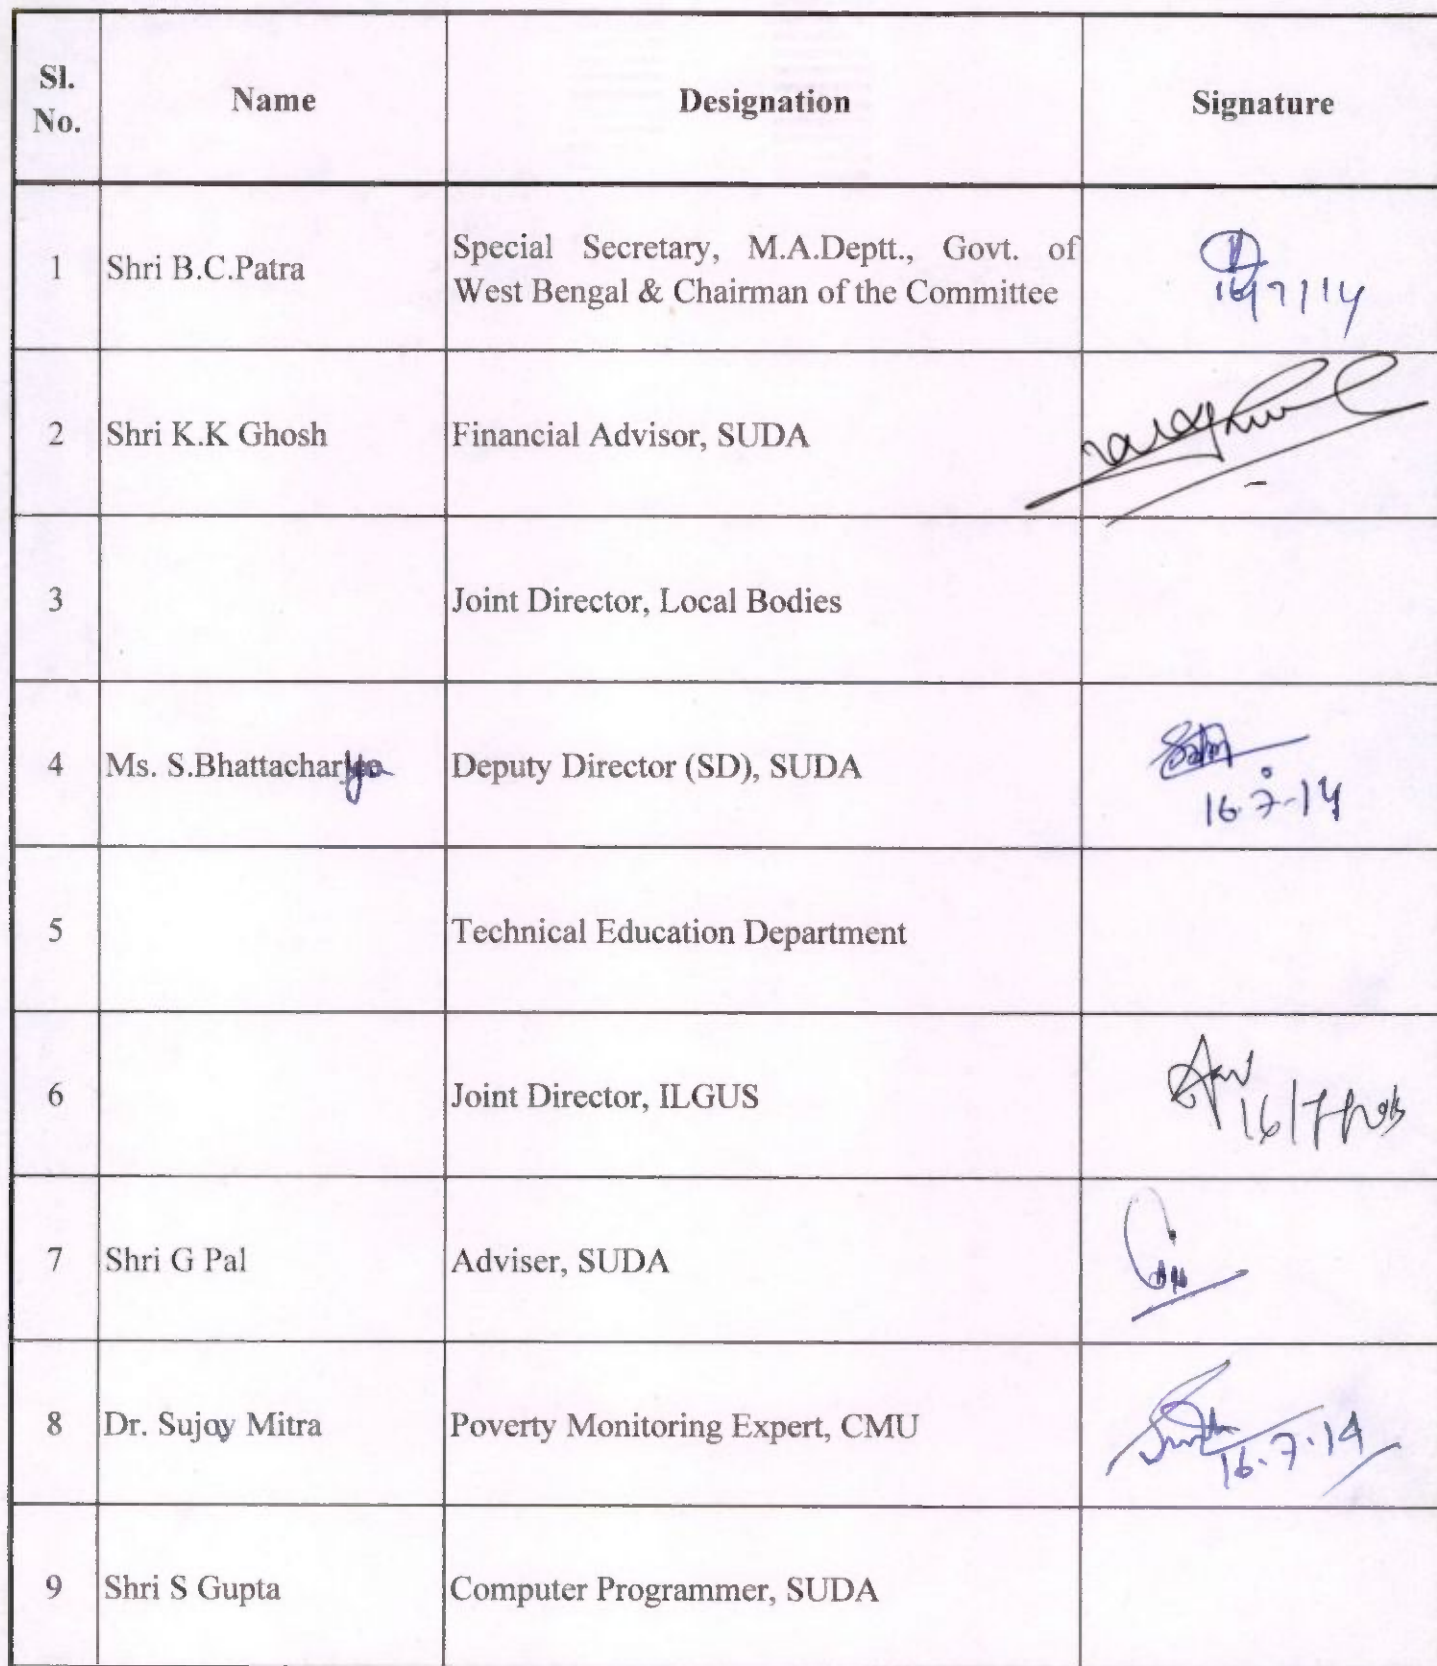 Sl. No. Name Designation Signature
1 Shri B.C.Patra Special Secretary, M.A.Deptt., Govt. of
West Bengal & Chairman of the Committee
16/7/14
2 Shri K.K Ghosh Financial Advisor, SUDA
3 Joint Director, Local Bodies
4 Ms. S.Bhattacharya Deputy Director (SD), SUDA
16.7.14
5 Technical Education Department
6 Joint Director, ILGUS
16/7
7 Shri G Pal Adviser, SUDA
8 Dr. Sujoy Mitra Poverty Monitoring Expert, CMU
16.7.14
9 Shri S Gupta Computer Programmer, SUDA